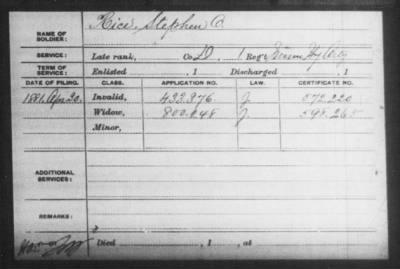 NAME OF SOLDIER: Rice, Stephen O.
SERVICE: Late rank, Co. D, 1 Reg't Tenn Hy Arty
TERM OF SERVICE: Enlisted , 1 Discharged , 1
DATE OF FILING. CLASS. APPLICATION NO. LAW. CERTIFICATE NO.
1881, Apr 20. Invalid, 433.376 J. 572.220
Widow, 800.648 J.
Minor,
ADDITIONAL SERVICES:
REMARKS:
Died , 1 , at